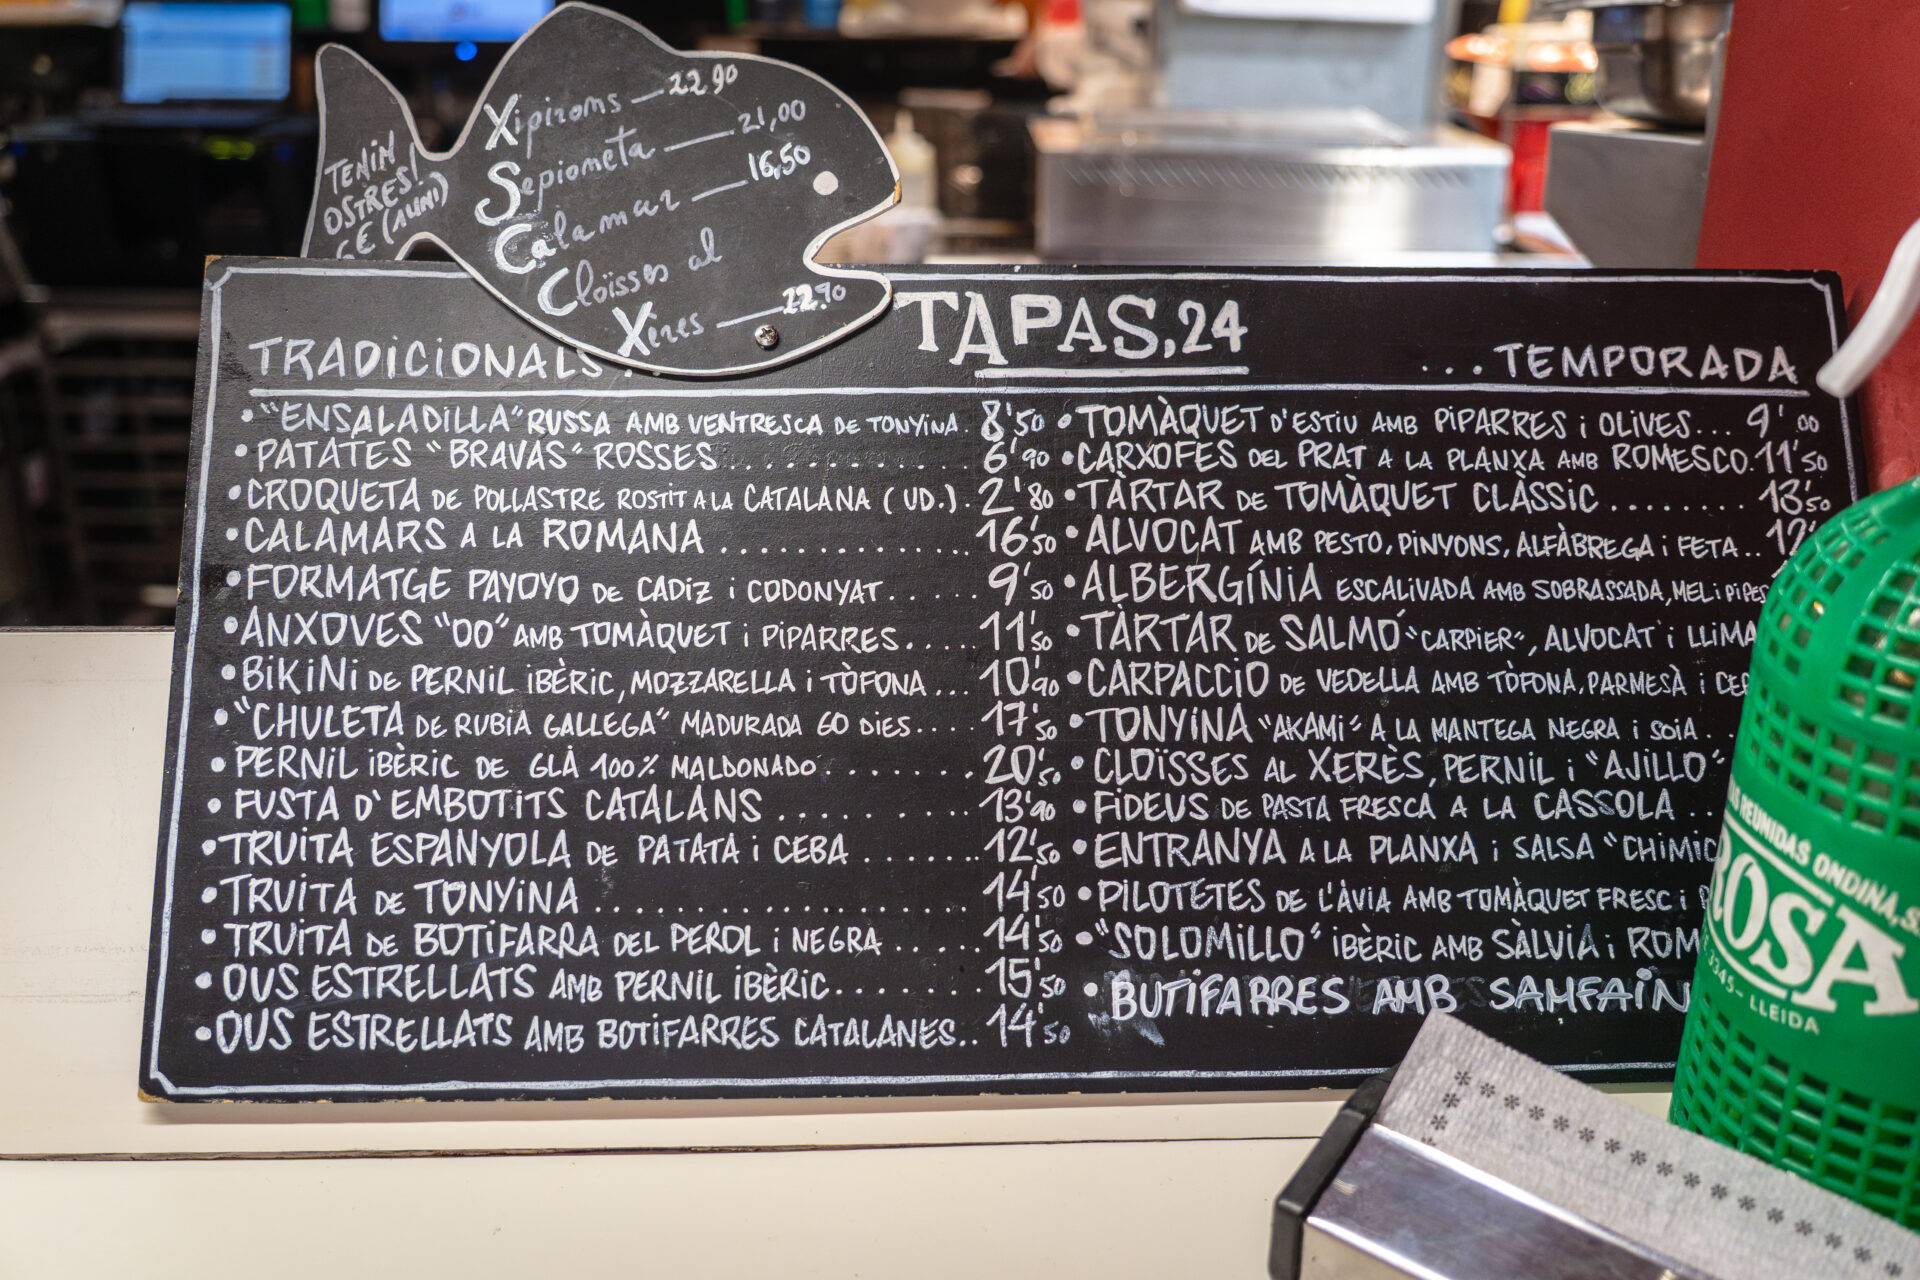 TENIM
OSTRES!
6€ (1 UNI)
Xipirons — 22,90
Sepioneta — 21,00
Calamar — 16,50
Cloïsses al
Xères — 22,90
TAPAS,24
TRADICIONALS
• "ENSALADILLA" RUSSA AMB VENTRESCA DE TONYINA. 8'50
• PATATES "BRAVAS" ROSSES............ 6'90
• CROQUETA DE POLLASTRE ROSTIT A LA CATALANA (UD.). 2'80
• CALAMARS A LA ROMANA .............. 16'50
• FORMATGE PAYOYO DE CADIZ i CODONYAT..... 9'50
• ANXOVES "OO" AMB TOMÀQUET i PIPARRES..... 11'50
• BIKINI DE PERNIL IBÈRIC, MOZZARELLA i TÒFONA ... 10'90
• "CHULETA DE RUBIA GALLEGA" MADURADA 60 DIES.... 17'50
• PERNIL IBÈRIC DE GLÀ 100% MALDONADO........ 20'50
• FUSTA D'EMBOTITS CATALANS .......... 13'90
• TRUITA ESPANYOLA DE PATATA i CEBA ....... 12'50
• TRUITA DE TONYINA .................. 14'50
• TRUITA DE BOTIFARRA DEL PEROL i NEGRA ..... 14'50
• OUS ESTRELLATS AMB PERNIL IBÈRIC........ 15'50
• OUS ESTRELLATS AMB BOTIFARRES CATALANES.. 14'50
...TEMPORADA
• TOMÀQUET D'ESTIU AMB PIPARRES i OLIVES... 9'00
• CARXOFES DEL PRAT A LA PLANXA AMB ROMESCO. 11'50
• TÀRTAR DE TOMÀQUET CLÀSSIC ........ 13'50
• ALVOCAT AMB PESTO, PINYONS, ALFÀBREGA i FETA.. 12'
• ALBERGÍNIA ESCALIVADA AMB SOBRASSADA, MEL i PIPES
• TÀRTAR DE SALMÓ "CARPIER", ALVOCAT i LLIMA
• CARPACCIO DE VEDELLA AMB TÒFONA, PARMESÀ i
• TONYINA "AKAMI" A LA MANTEGA NEGRA i SOIA .
• CLOÏSSES AL XERÈS, PERNIL i "AJILLO"
• FIDEUS DE PASTA FRESCA A LA CASSOLA ..
• ENTRANYA A LA PLANXA i SALSA "CHIMIC
• PILOTETES DE L'ÀVIA AMB TOMÀQUET FRESC i
• "SOLOMILLO" IBÈRIC AMB SÀLVIA i ROM
• BUTIFARRES AMB SAMFAIN
REUNIDAS ONDINA, S.
ROSA
3345- LLEIDA